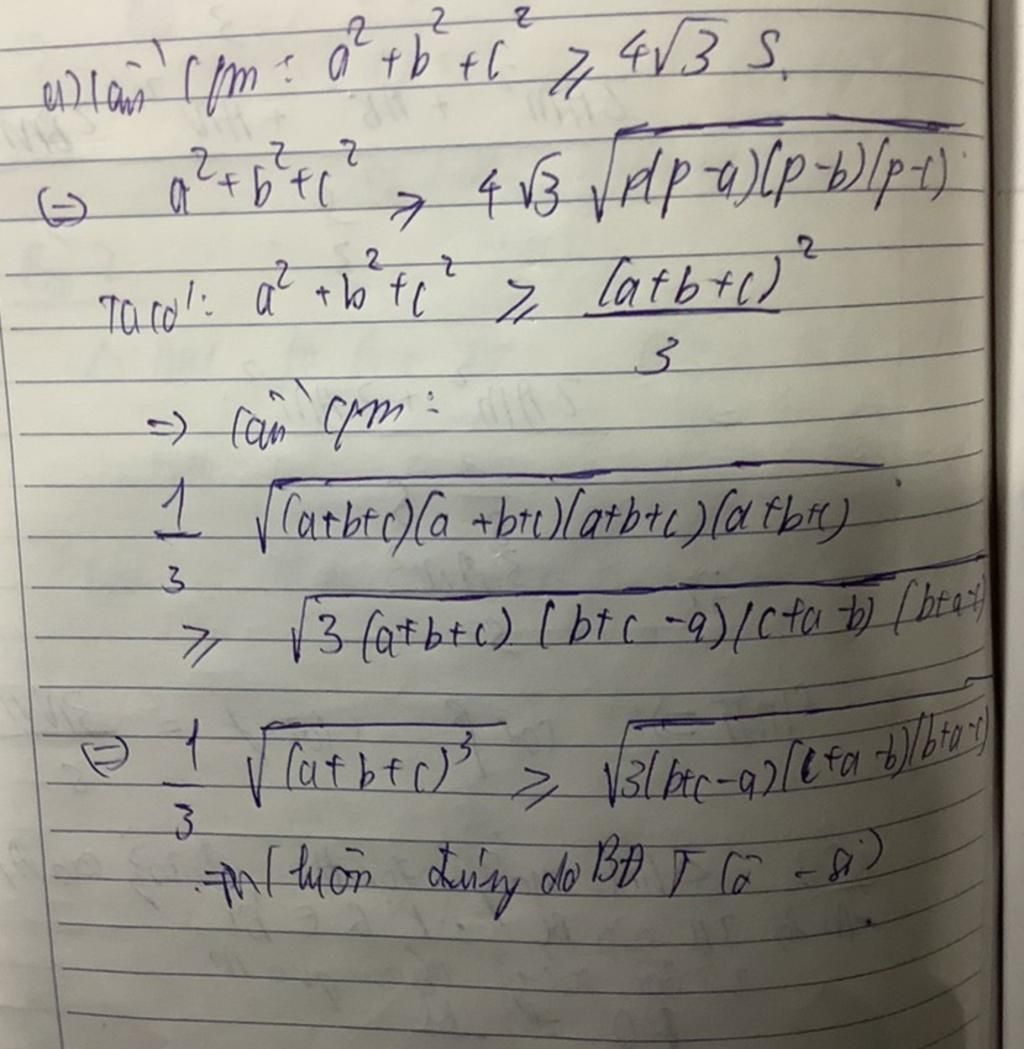 a) Cần CM: a² + b² + c² ≥ 4√3 S.
⇔ a² + b² + c² ≥ 4√3 √p(p-a)(p-b)(p-c)
Ta có: a² + b² + c² ≥ (a+b+c)²/3
⇒ Cần CM:
1/3 √(a+b+c)(a+b+c)(a+b+c)(a+b+c)
≥ √3(a+b+c)(b+c-a)(c+a-b)(b+a-c)
⇔ 1/3 √(a+b+c)³ ≥ √3(b+c-a)(c+a-b)(b+a-c)
luôn đúng do BĐT Cô-si)